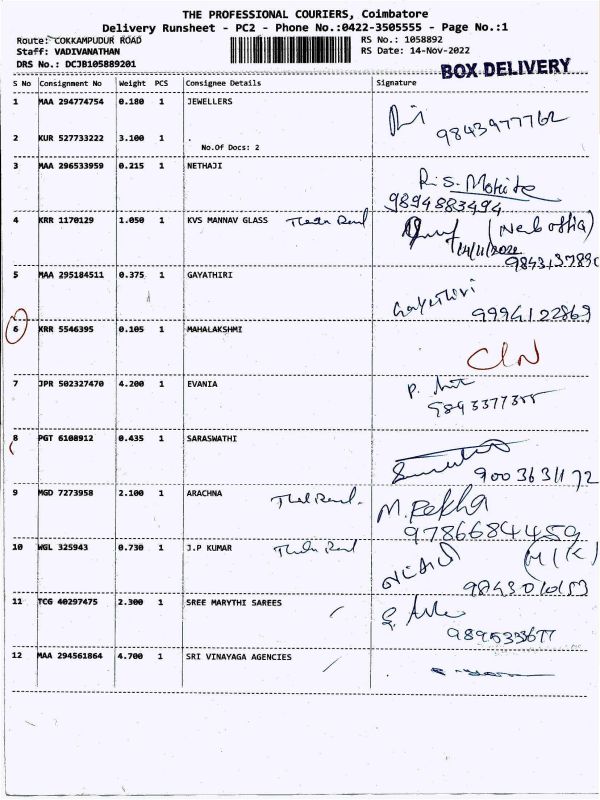 THE PROFESSIONAL COURIERS, Coimbatore
Delivery Runsheet - PC2 - Phone No.:0422-3505555 - Page No.:1
Route: COKKAMPUDUR ROAD RS No.: 1058892
Staff: VADIVANATHAN RS Date: 14-Nov-2022
DRS No.: DCJB105889201
BOX DELIVERY
S No Consignment No Weight PCS Consignee Details Signature
1 MAA 294774754 0.180 1 JEWELLERS
9843977762
2 KUR 527733222 3.100 1 .
No.Of Docs: 2
3 MAA 296533959 0.215 1 NETHAJI
R.S. Mohite
9894883494
4 KRR 1170129 1.050 1 KVS MANNAV GLASS
14/11/2022
5 MAA 295184511 0.375 1 GAYATHIRI
Gayathiri
9994122869
6 KRR 5546395 0.105 1 MAHALAKSHMI
7 JPR 502327470 4.200 1 EVANIA
8 PGT 6108912 0.435 1 SARASWATHI
9 MGD 7273958 2.100 1 ARACHNA
M. Rekha
9786684459
10 WGL 325943 0.730 1 J.P KUMAR
11 TCG 40297475 2.300 1 SREE MARYTHI SAREES
12 MAA 294561864 4.700 1 SRI VINAYAGA AGENCIES